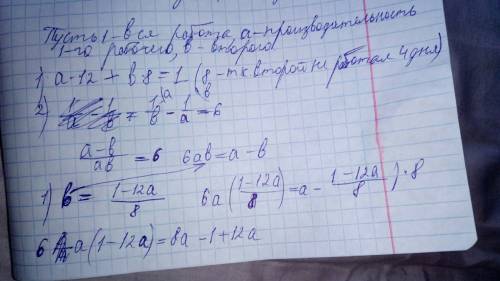 Пусть 1 - вся работа, a - производительность
1-го рабочего, b - второго
1) a·12 + b·8 = 1 (8 - тк второй не работал 4 дня)
2) 1/b - 1/a = 6
(a-b)/ab = 6 6ab = a - b
1) b = (1-12a)/8 6a((1-12a)/8) = a - (1-12a)/8 )·8
6 a(1-12a) = 8a - 1 + 12a